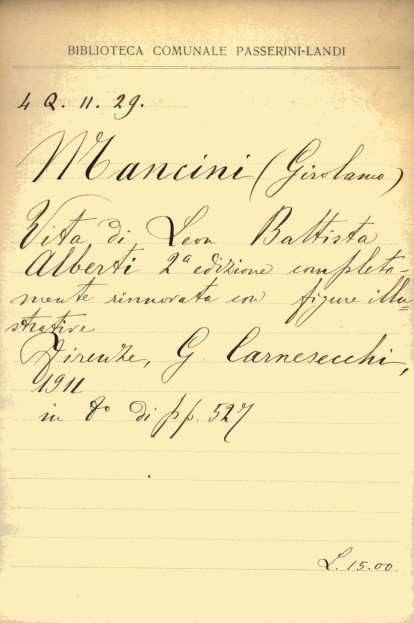 BIBLIOTECA COMUNALE PASSERINI-LANDI
4 Q. 11. 29.
Mancini (Girolamo)
Vita di Leon Battista
Alberti 2ª edizione completa-
mente rinnovata con figure illu=
strative
Firenze, G. Carnesecchi,
1911
in 8º di pp. 527
L. 15.00